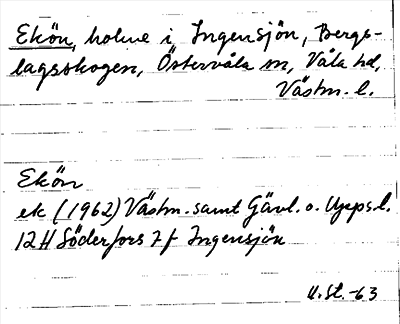 Ekön, holme i Ingensjön, Bergs-
lagsskogen, Östervåla sn, Våla hd,
Västm. l.
Ekön
ek (1962) Västm. samt Gävl. o. Upps. l.
12 H Söderfors 7 f Ingensjön
U. St. -63